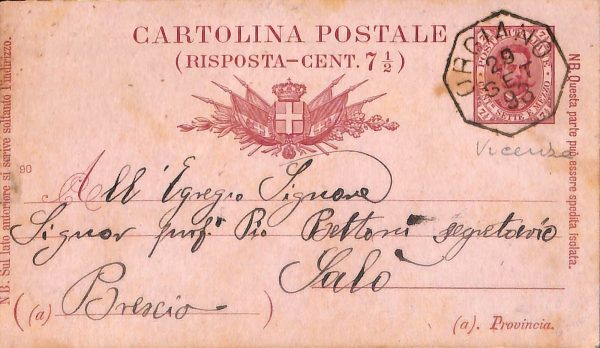 CARTOLINA POSTALE
(RISPOSTA-CENT. 7 ½)
URGIANO
29
SET
96
POSTE ITALIANE
SETTE E MEZZO
Vicenza
NB. Sul lato anteriore si scrive soltanto l'indirizzo.
NB. Questa parte può essere spedita isolata.
90
All' Egregio Signore
Signor prof. Pio Bettoni segretario
Salò
(a) Brescia )
(a). Provincia.